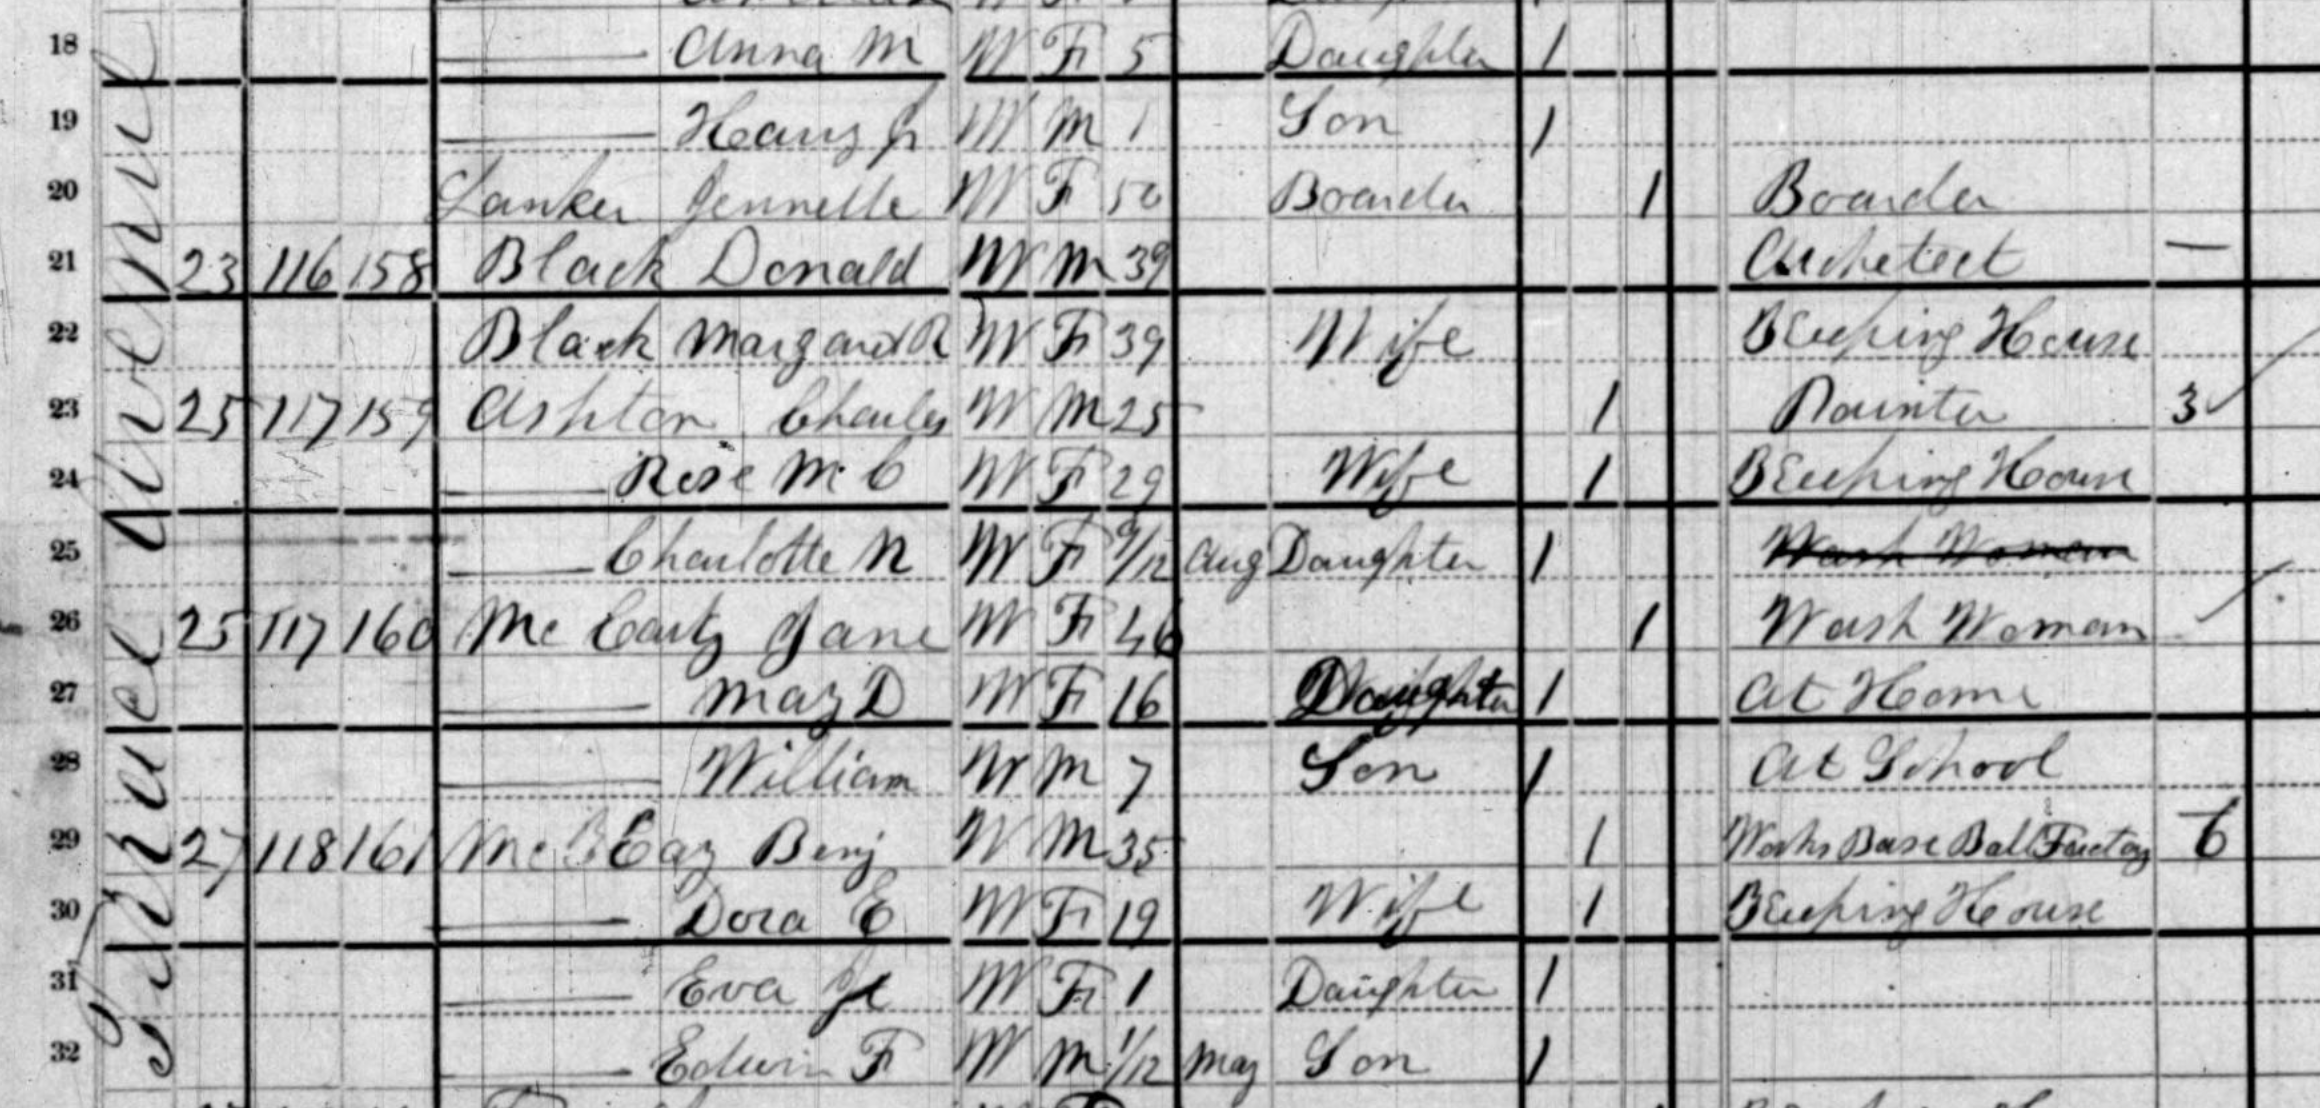 18 —— Anna M W F 5 Daughter 1
19 —— Harry Jr W M 1 Son 1
20 Lanker Jennelle W F 50 Boarder 1 Boarder
21 23 116 158 Black Donald W M 39 Architect —
22 Black Margaret R W F 39 Wife Keeping House
23 25 117 159 Ashton Charles W M 25 1 Painter 3
24 —— Rose Mc C W F 29 Wife 1 Keeping House
25 —— Charlotte N W F 9/12 Aug Daughter 1 Wash Woman
26 25 117 160 Mc Carty Jane W F 46 1 Wash Woman
27 —— May D W F 16 Daughter 1 At Home
28 —— William W M 7 Son 1 At School
29 27 118 161 Benj W M 35 1 Works Base Ball Factory 6
30 —— Dora E W F 19 Wife 1 Keeping House
31 —— Eva W F 1 Daughter 1
32 —— Edwin F W M 1/12 May Son 1
Avenue